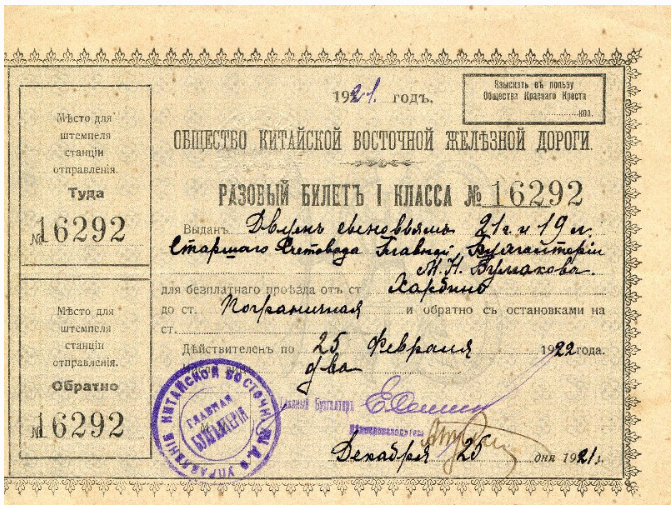 1921. годъ.
Взыскать въ пользу
Общества Краснаго Креста
коп.
ОБЩЕСТВО КИТАЙСКОЙ ВОСТОЧНОЙ ЖЕЛѢЗНОЙ ДОРОГИ.
РАЗОВЫЙ БИЛЕТЪ I КЛАССА № 16292
Выданъ Двумъ сыновьямъ 21 г. и 19 л.
Старшаго Счетовода Главной Бухгалтеріи
М. Н. Бумакова.
для безплатнаго проѣзда отъ ст. Харбинъ
до ст. Пограничная и обратно съ остановками на
ст.
Дѣйствителенъ по 25 Февраля 1922 года.
два
Главный Бухгалтеръ
Декабря 25 дня 1921 г.
Мѣсто для
штемпеля
станціи
отправленія.
Туда
№ 16292
Мѣсто для
штемпеля
станціи
отправленія.
Обратно
№ 16292
УПРАВЛЕНІЕ КИТАЙСКОЙ ВОСТОЧН. Ж. Д.
ГЛАВНАЯ
БУХГАЛТЕРІЯ